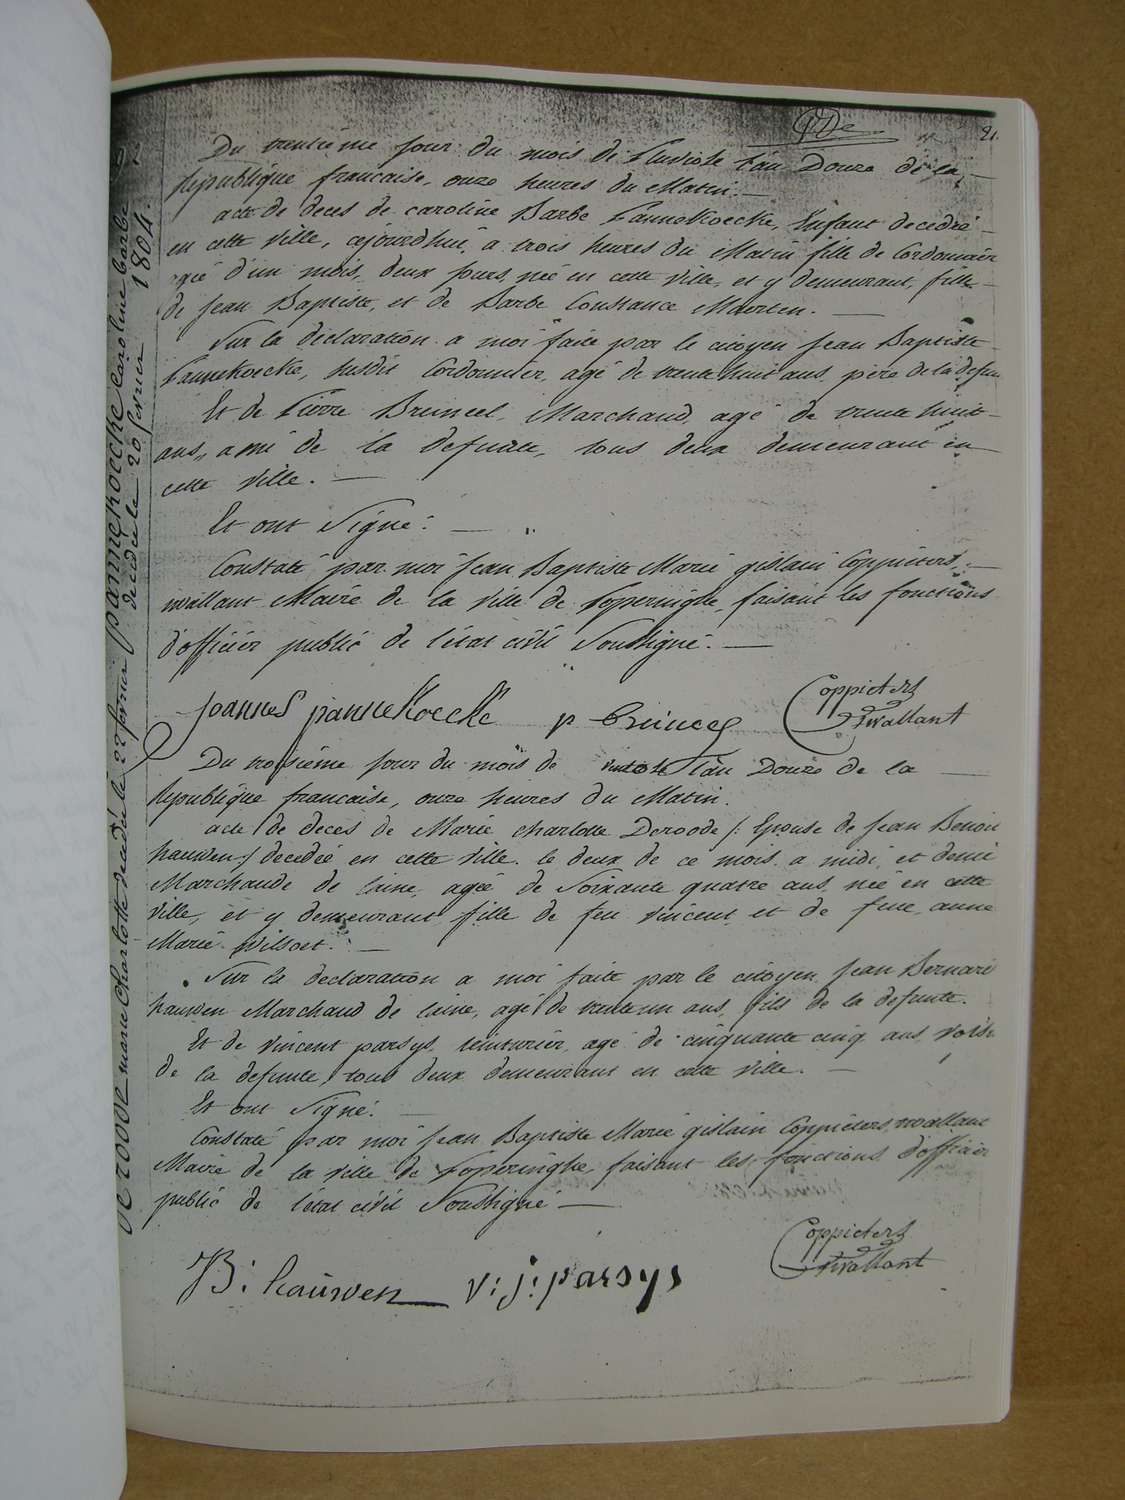 21.
Du trentième jour du mois de Pluviose l'an Douze de la
République francaise, onze heures du Matin.
acte de deces de caroline Barbe Pannekoecke, Enfant decedée
en cette ville, cejourdhui, a trois heures du Matin fille de Cordonnier
agée d'un mois, deux jours, née en cette ville, et y demeurant, fille
de Jean Baptiste, et de Barbe Constance Merlen.
Sur la déclaration a moi faite par le citoyen Jean Baptiste
Pannekoecke, susdit Cordonnier, agé de trente huit ans, père de la defunte
Et de Pierre Bruneel, Marchand, agé de trente huit
ans, ami de la defunte, tous deux demeurant en
cette ville.
Et ont Signé:
Constaté par moi Jean Baptiste Marie gislain Coppieters,
wallant Maire de la ville de Poperinghe, faisant les fonctions
d'officier public de l'état civil Soussigné.
Joannes pannekoecke p Bruneel Coppieters
wallant
Du troisième jour du mois de ventose l'an Douze de la
République francaise, onze heures du Matin.
acte de deces de Marie Charlotte Deroode /: Epouse de Jean Benoit
hauwen / decedée en cette ville le deux de ce mois a midi et demie
Marchande de laine, agée de Soixante quatre ans née en cette
ville, et y demeurant, fille de feu vincent et de feue anne
Marie Wilsoet.
Sur la declaration a moi faite par le citoyen Jean Bernard
hauwen Marchand de laine, agé de trente un ans, fils de la defunte.
Et de vincent parsys, teinturier, agé de cinquante cinq ans voisin
de la defunte, tous deux demeurant en cette ville.
Et ont Signé:
Constaté par moi Jean Baptiste Marie gislain Coppieters wallant
Maire de la ville de Poperinghe, faisant les fonctions d'officier
public de l'état civil Soussigné
B: hauwen v: j: parsys Coppieters
wallant
pannekoecke caroline barbe
decedée le 20 fevrier 1804.
De roode marie Charlotte decedée le 22 fevrier